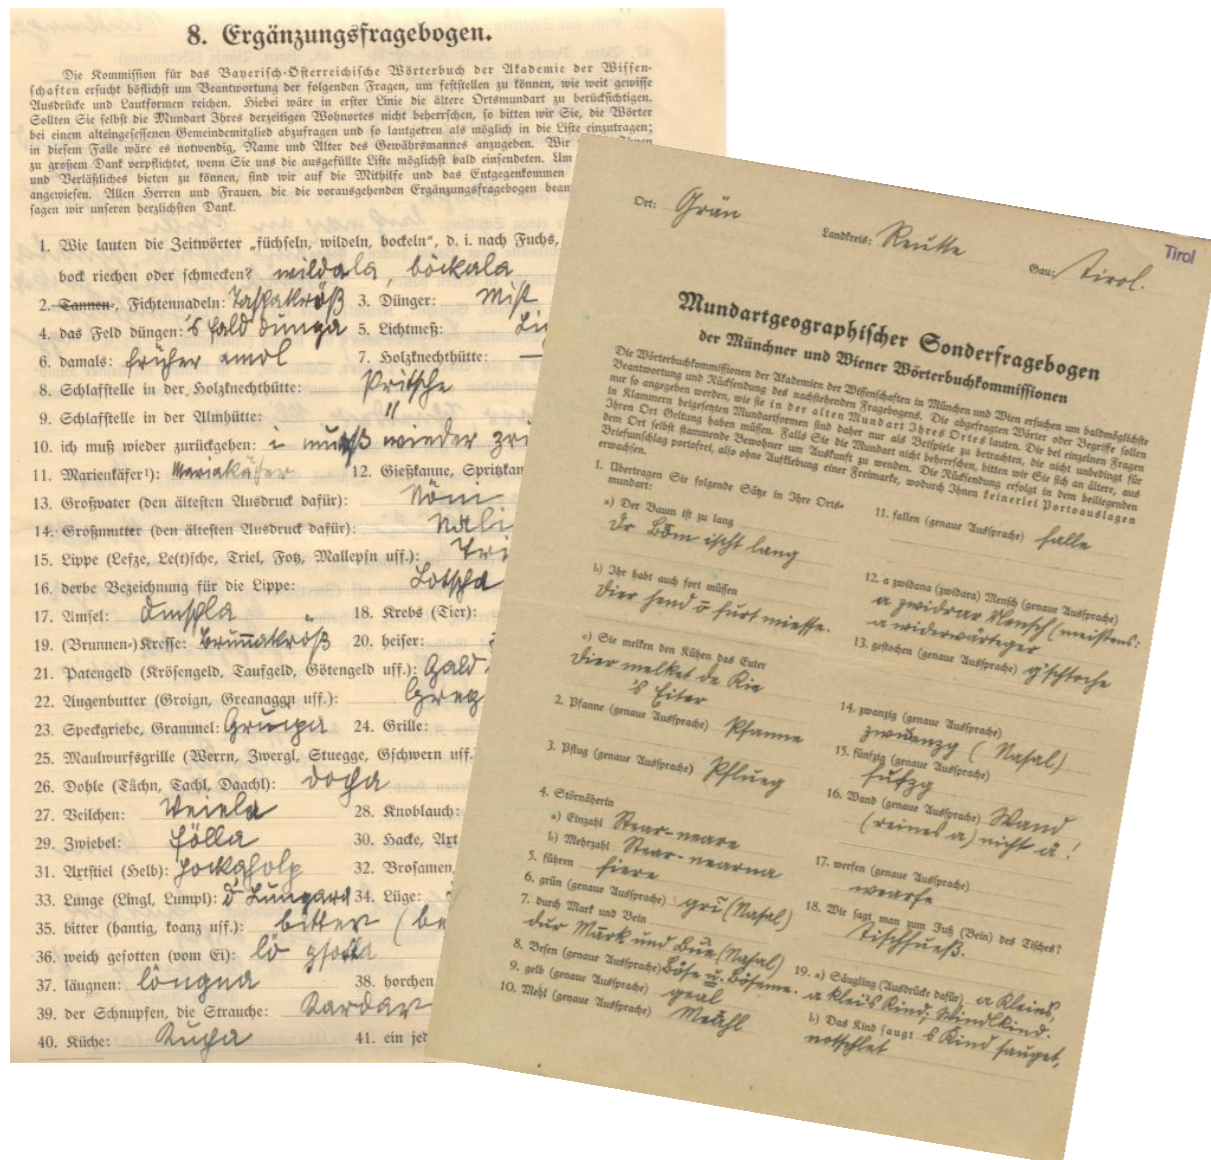 8. Ergänzungsfragebogen.
Die Kommission für das Bayerisch-Österreichische Wörterbuch der Akademie der Wissen-
schaften ersucht höflichst um Beantwortung der folgenden Fragen, um feststellen zu können, wie weit gewisse
Ausdrücke und Lautformen reichen. Hiebei wäre in erster Linie die ältere Ortsmundart zu berücksichtigen.
Sollten Sie selbst die Mundart Ihres derzeitigen Wohnortes nicht beherrschen, so bitten wir Sie, die Wörter
bei einem alteingesessenen Gemeindemitglied abzufragen und so lautgetreu als möglich in die Liste einzutragen;
in diesem Falle wäre es notwendig, Name und Alter des Gewährsmannes anzugeben. Wir
zu großem Dank verpflichtet, wenn Sie uns die ausgefüllte Liste möglichst bald einsendeten. Um
und Verläßliches bieten zu können, sind wir auf die Mithilfe und das Entgegenkommen
angewiesen. Allen Herren und Frauen, die die vorausgehenden Ergänzungsfragebogen bean
sagen wir unseren herzlichsten Dank.
1. Wie lauten die Zeitwörter „füchseln, wildeln, bockeln", d. i. nach Fuchs,
bock riechen oder schmecken? wildala, böckala
2. Tannen-, Fichtennadeln: 3. Dünger: Mist
4. das Feld düngen: 's fald dunga 5. Lichtmeß:
6. damals: früher amol 7. Holzknechthütte: —
8. Schlafstelle in der Holzknechthütte: Pritsche
9. Schlafstelle in der Almhütte: "
10. ich muß wieder zurückgehen: i muaß wieder
11. Marienkäfer¹): Mariakäfer 12. Gießkanne, Spritzkan
13. Großvater (den ältesten Ausdruck dafür): Nöni
14. Großmutter (den ältesten Ausdruck dafür): Nali
15. Lippe (Lefze, Le(t)sche, Triel, Fotz, Mallepsn uff.): Tri
16. derbe Bezeichnung für die Lippe: Lotscha
17. Amsel: Amsla 18. Krebs (Tier):
19. (Brunnen-)Kresse: Brunnakröß 20. heiser:
21. Patengeld (Krösengeld, Taufgeld, Götengeld uff.): Gald
22. Augenbutter (Groign, Greanaggn uff.):
23. Speckgriebe, Grammel: Gruipa 24. Grille:
25. Maulwurfsgrille (Werrn, Zwergl, Stuegge, Gschwern uff.
26. Dohle (Tächn, Tachl, Daachl): Docha
27. Veilchen: Veiela 28. Knoblauch:
29. Zwiebel: Zölla 30. Hacke, Axt
31. Axtstiel (Helb): 32. Brosamen,
33. Lunge (Lingl, Lumpl): 34. Lüge:
35. bitter (hantig, koanz uff.): bitter (be
36. weich gesotten (vom Ei): lö gsotta
37. läugnen: löugna 38. horchen
39. der Schnupfen, die Strauche: Kardar
40. Küche: Kucha 41. ein jed
Ort: Grän
Landkreis: Reutte
Gau: Tirol.
Tirol
Mundartgeographischer Sonderfragebogen
der Münchner und Wiener Wörterbuchkommissionen
Die Wörterbuchkommissionen der Akademien der Wissenschaften in München und Wien ersuchen um baldmöglichste
Beantwortung und Rücksendung des nachstehenden Fragebogens. Die abgefragten Wörter oder Begriffe sollen
nur so angegeben werden, wie sie in der alten Mundart Ihres Ortes lauten. Die bei einzelnen Fragen
in Klammern beigesetzten Mundartformen sind daher nur als Beispiele zu betrachten, die nicht unbedingt für
Ihren Ort Geltung haben müssen. Falls Sie die Mundart nicht beherrschen, bitten wir Sie sich an ältere, aus
dem Ort selbst stammende Bewohner um Auskunft zu wenden. Die Rücksendung erfolgt in dem beiliegenden
Briefumschlag portofrei, also ohne Aufklebung einer Freimarke, wodurch Ihnen keinerlei Portoauslagen
erwachsen.
1. Übertragen Sie folgende Sätze in Ihre Orts-
mundart:
a) Der Baum ist zu lang
Dr Bom ischt lang
b) Ihr habt auch fort müssen
Dier hend ö furt miesse.
c) Sie melken den Kühen das Euter
Dier melket de Kie
's Eiter
2. Pfanne (genaue Aussprache) Pfanne
3. Pflug (genaue Aussprache) Pflueg
4. Störnäherin
a) Einzahl Stear-neare
b) Mehrzahl Stear-nearna
5. führen fiere
6. grün (genaue Aussprache) grī (Nasal)
7. durch Mark und Bein
dur Mark und Bue (Nasal)
8. Besen (genaue Aussprache) Böse u. Böseme.
9. gelb (genaue Aussprache) geal
10. Mehl (genaue Aussprache) Meahl
11. fallen (genaue Aussprache) falle
12. a zwidana (zwidara) Mensch (genaue Aussprache)
a zwidrar Mensch (meistens:
a widerwärtiger
13. gestochen (genaue Aussprache) g'schtoche
14. zwanzig (genaue Aussprache)
zwuanzg (Nasal)
15. fünfzig (genaue Aussprache)
fufzg
16. Wand (genaue Aussprache) Wand
(reines a) nicht å!
17. werfen (genaue Aussprache)
wearfe
18. Wie sagt man zum Fuß (Bein) des Tisches?
Tischfueß.
19. a) Säugling (Ausdrücke dafür) a kleis,
a kleis Kind; Windlkind.
b) Das Kind saugt: s Kind sauget,
notschlet